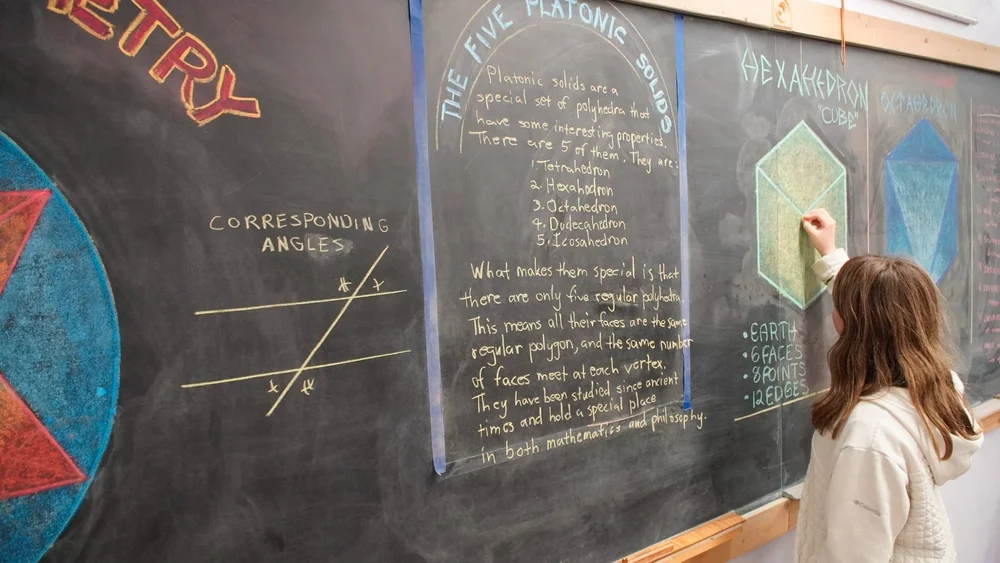 ETRY
CORRESPONDING
ANGLES
THE FIVE PLATONIC SOLIDS
Platonic solids are a
special set of polyhedra that
have some interesting properties.
There are 5 of them. They are:
1. Tetrahedron
2. Hexahedron
3. Octahedron
4. Dodecahedron
5. Icosahedron
What makes them special is that
there are only five regular polyhedra.
This means all their faces are the same
regular polygon, and the same number
of faces meet at each vertex.
They have been studied since ancient
times and hold a special place
in both mathematics and philosophy.
HEXAHEDRON
"CUBE"
• EARTH
• 6 FACES
• 8 POINTS
• 12 EDGES
OCTAHEDRON
Columbia